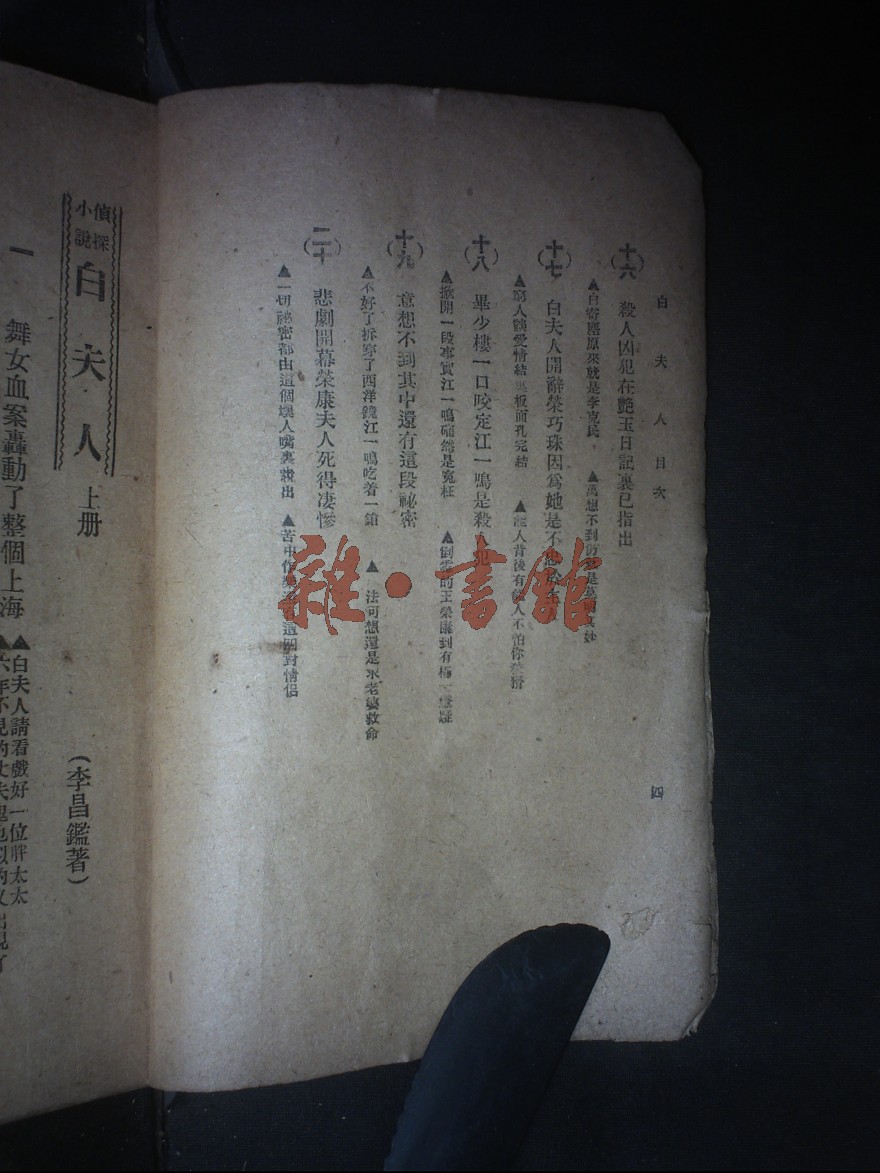 白夫人目次
四
(十六) 殺人凶犯在艷玉日記裏已指出
▲白寄萍原來就是李克民 ▲萬想不到
(十七) 白夫人開辭榮巧珠因爲她是不
▲ 人談愛情結 板面孔完結 ▲ 人背後有 人不怕你
(十八) 畢少樓一口咬定江一鳴是殺人犯
▲掀開一段事實江一鳴確然是冤枉 ▲倒霉的王榮 到有
(十九) 意想不到其中還有這段祕密
▲不好了拆穿了西洋鏡江一鳴吃着一鎗 ▲ 法可想還是求老婆救命
(二十) 悲劇開幕榮康夫人死得凄慘
▲一切祕密都由這個壞人嘴裏說出 ▲苦中作樂 這 對情侶
偵探小說
白夫人 上册
(李昌鑑著)
一 舞女血案轟動了整個上海
▲白夫人請看戲好一位胖太太
▲六年不見的丈夫鬼也似的又出現了
雜·書館